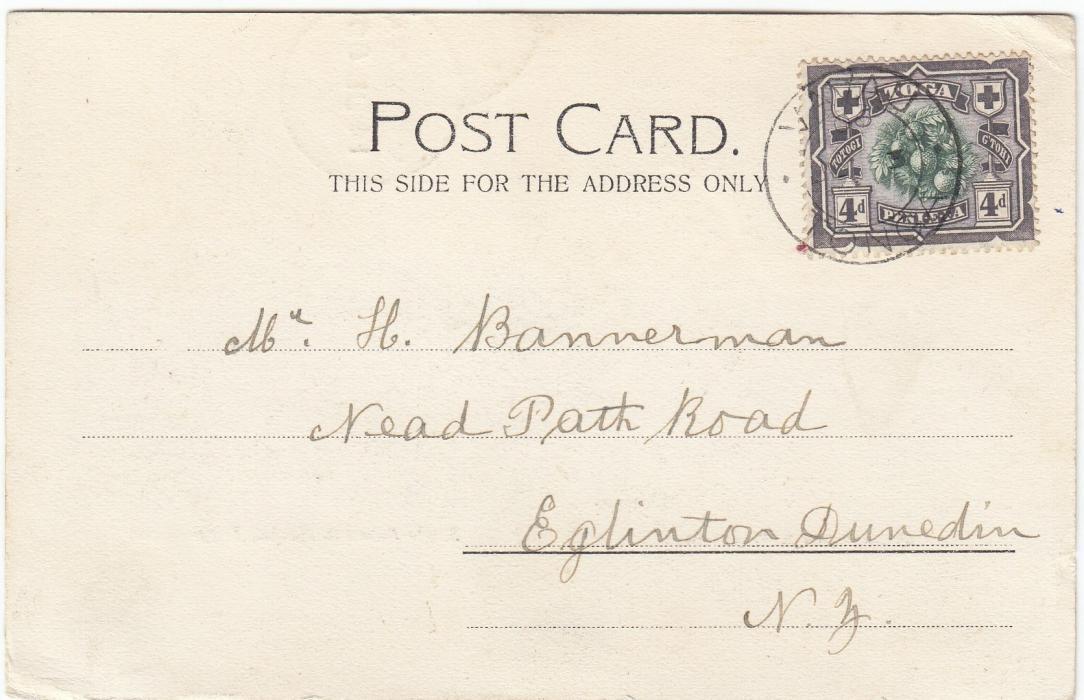 POST CARD.
THIS SIDE FOR THE ADDRESS ONLY
TOGA
TOTOGI
4d 4d
Mr. H. Bannerman
Nead Path Road
Eglinton Dunedin
N. Z.